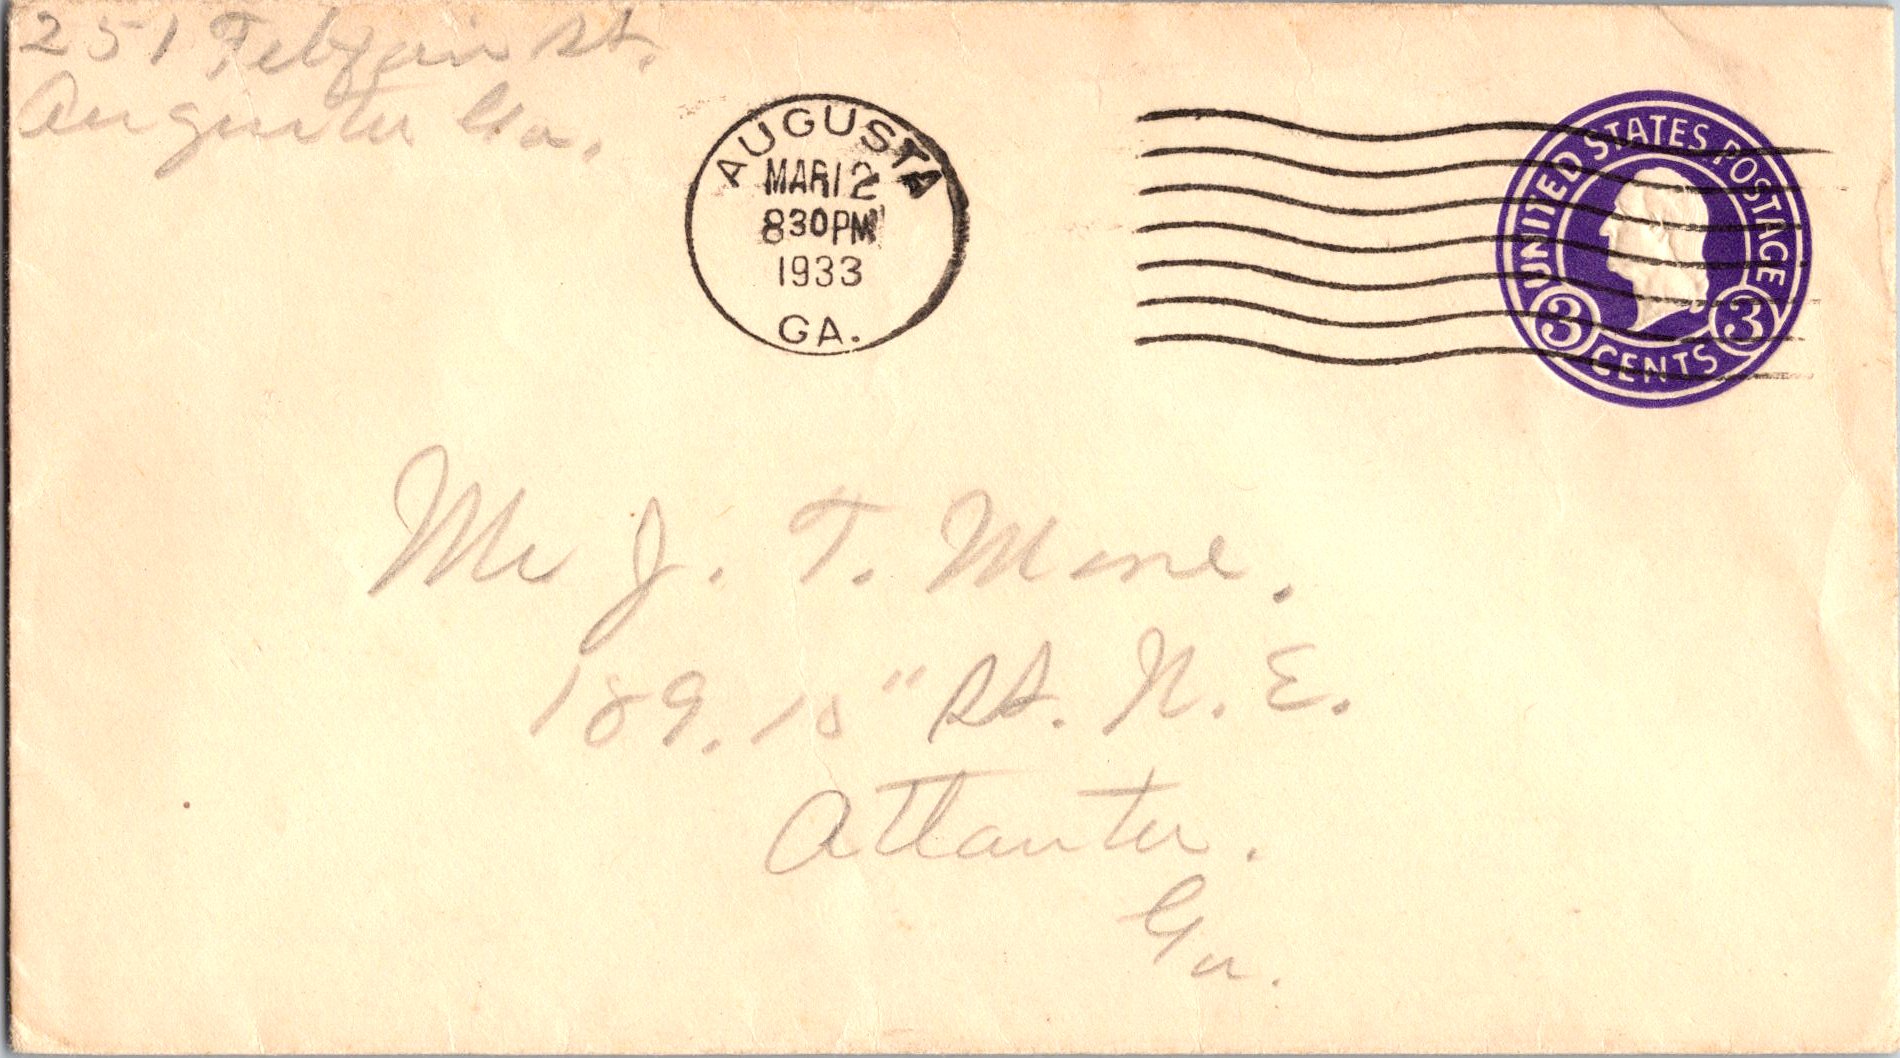 251 Telfair St.
Augusta Ga.
AUGUSTA
MAR 12
830 PM
1933
GA.
UNITED STATES POSTAGE
3 CENTS 3
Mr J. T.
189. St. N. E.
Atlanta.
Ga.